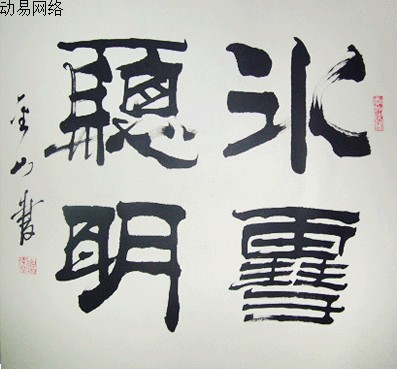 动易网络
冰雪
聰明
金山